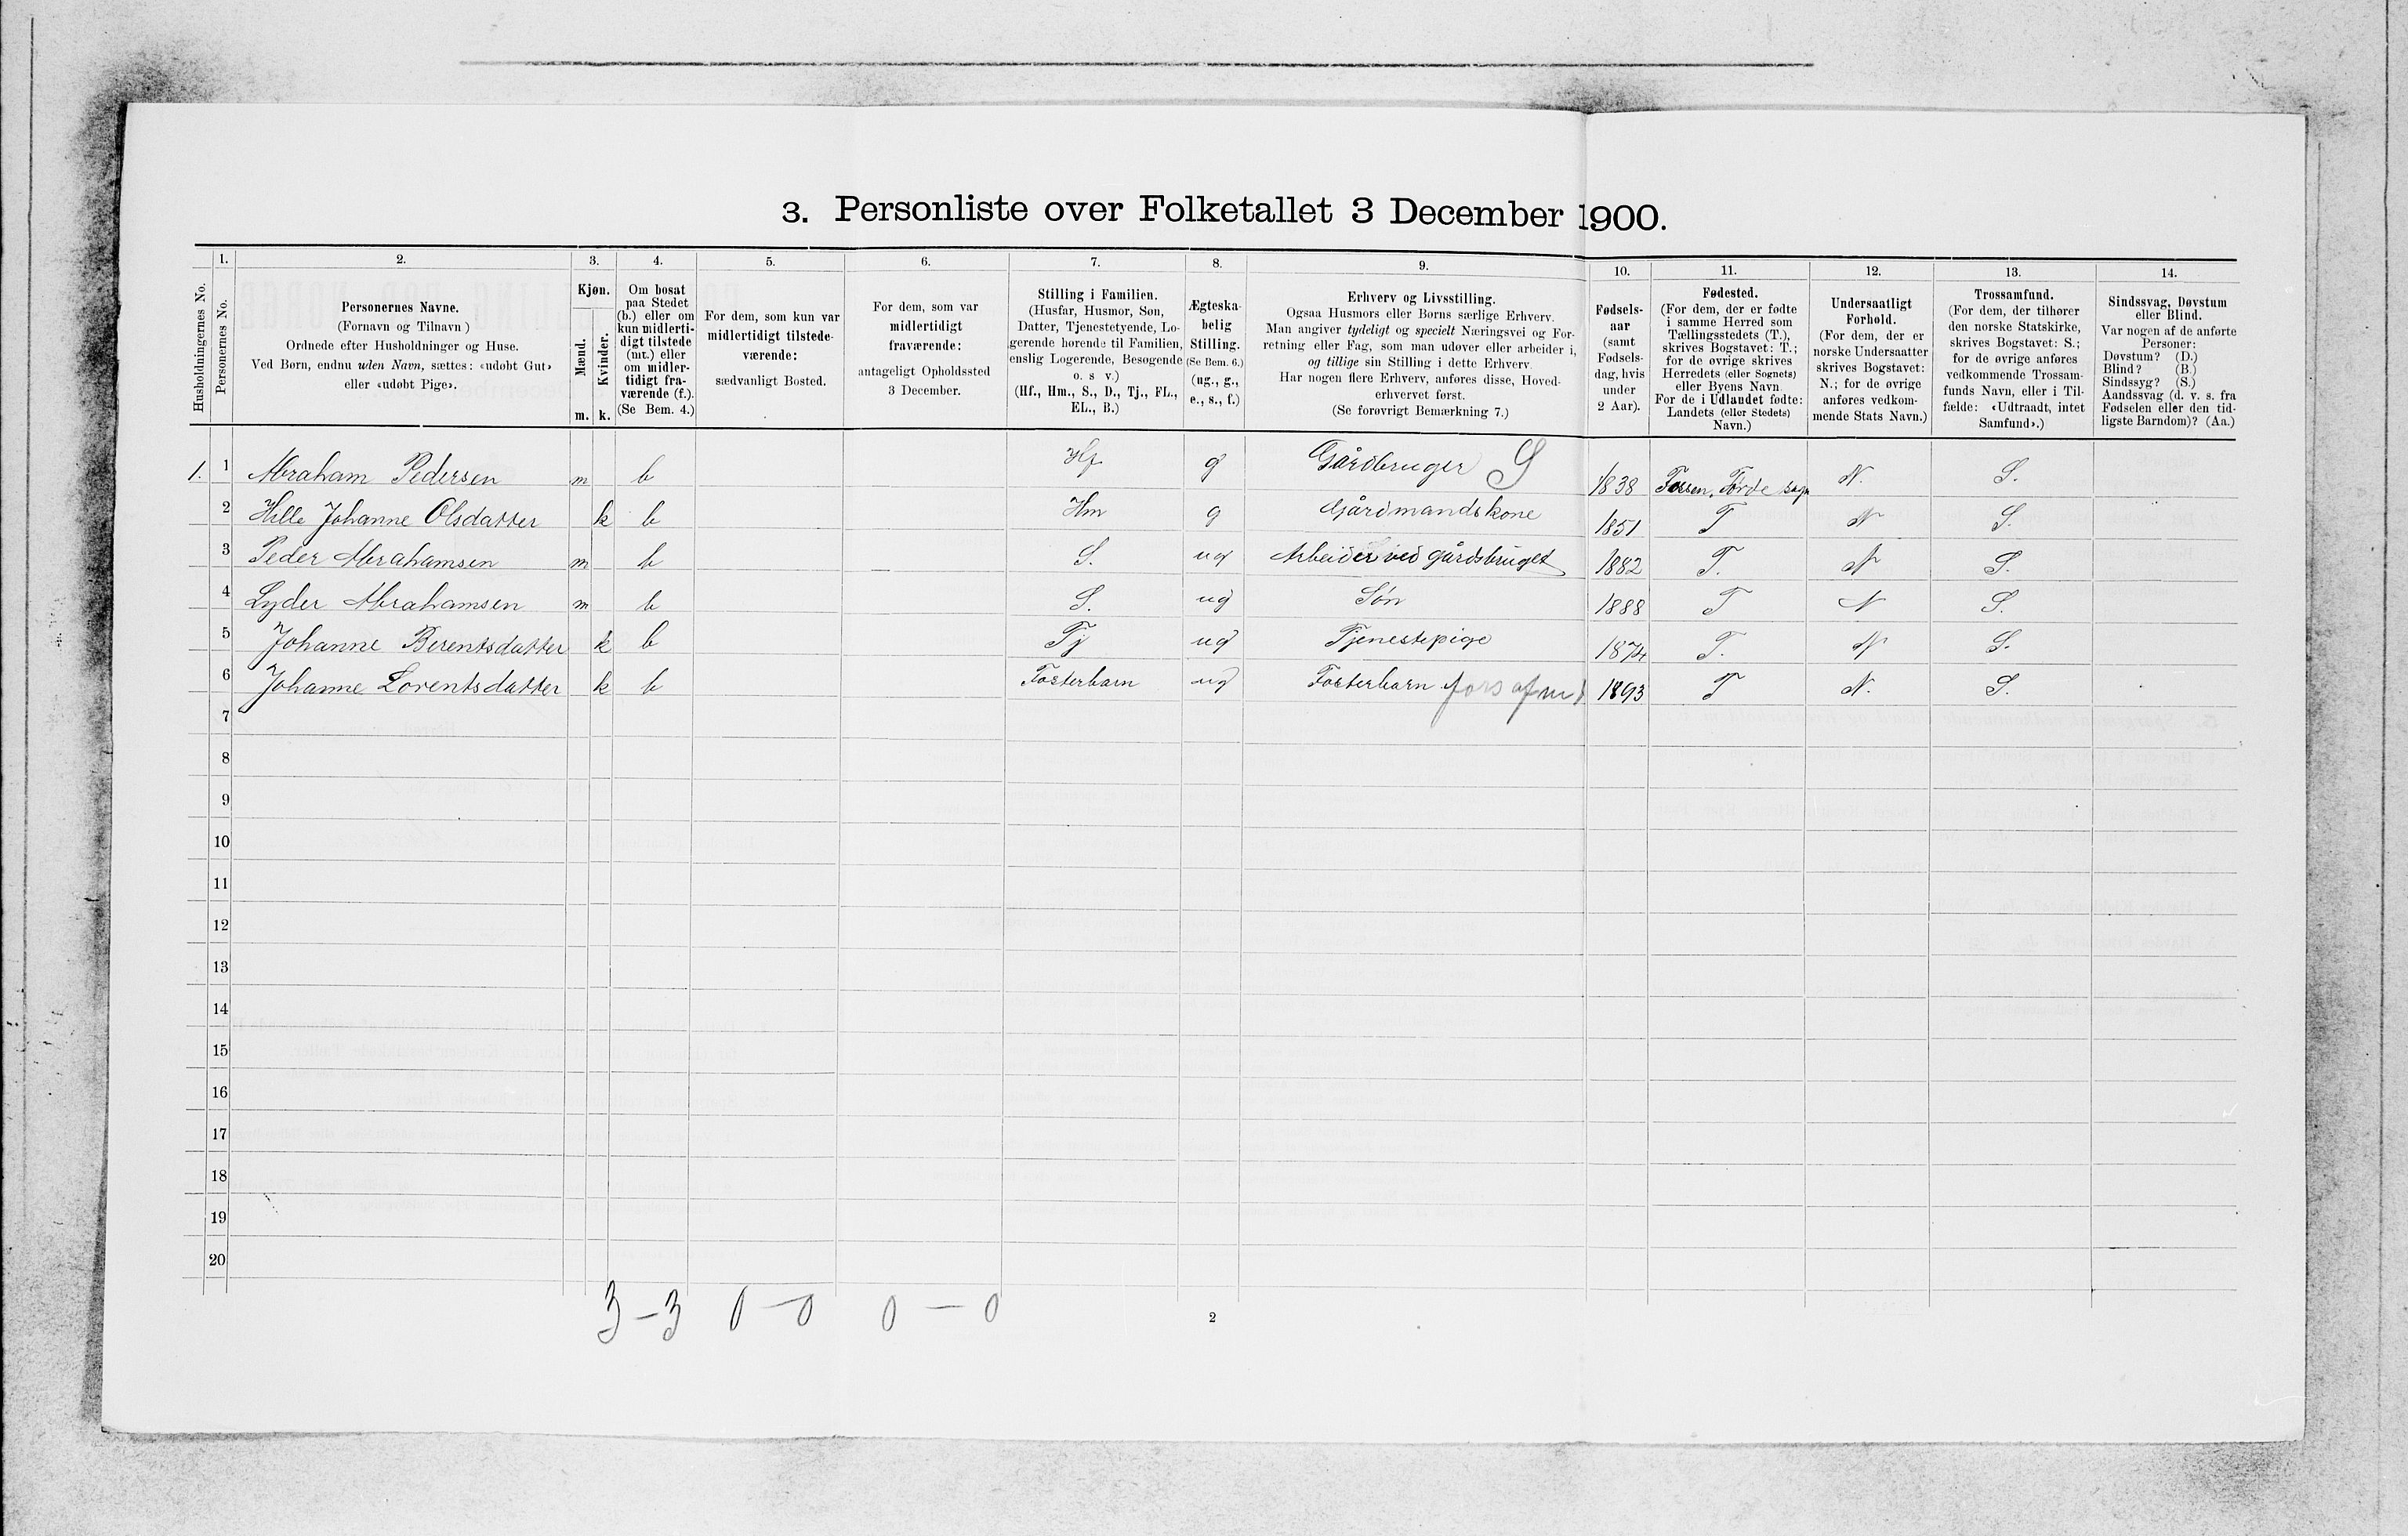 3. Personliste over Folketallet 3 December 1900.
1. 2. 3. 4. 5. 6. 7. 8. 9. 10. 11. 12. 13. 14.
Husholdningernes No.
Personernes No.
Personernes Navne.
(Fornavn og Tilnavn )
Ordnede efter Husholdninger og Huse.
Ved Børn, endnu uden Navn, sættes: «udøbt Gut»
eller «udøbt Pige».
Kjøn.
Mænd.
Kvinder.
m. k.
Om bosat
paa Stedet
(b.) eller om
kun midlerti-
digt tilstede
(mt.) eller
om midler-
tidigt fra-
værende (f.).
(Se Bem. 4.)
For dem, som kun var
midlertidigt tilstede-
værende:
sædvanligt Bosted.
For dem, som var
midlertidigt
fraværende:
antageligt Opholdssted
3 December.
Stilling i Familien.
(Husfar, Husmor, Søn,
Datter, Tjenestetyende, Lo-
gerende hørende til Familien,
enslig Logerende, Besøgende
o. s v.)
(Hf., Hm., S., D., Tj., FL.,
EL., B.)
Ægteska-
belig
Stilling.
(Se Bem. 6.)
(ug., g.,
e., s., f.)
Erhverv og Livsstilling.
Ogsaa Husmors eller Børns særlige Erhverv.
Man angiver tydeligt og specielt Næringsvei og For-
retning eller Fag, som man udøver eller arbeider i,
og tillige sin Stilling i dette Erhverv.
Har nogen flere Erhverv, anføres disse, Hoved-
erhvervet først.
(Se forøvrigt Bemærkning 7.)
Fødsels-
aar
(samt
Fødsels-
dag, hvis
under
2 Aar).
Fødested.
(For dem, der er fødte
i samme Herred som
Tællingsstedets (T.),
skrives Bogstavet: T.;
for de øvrige skrives
Herredets (eller Sognets)
eller Byens Navn.
For de i Udlandet fødte:
Landets (eller Stedets)
Navn.)
Undersaatligt
Forhold.
(For dem, der er
norske Undersaatter
skrives Bogstavet:
N.; for de øvrige
anføres vedkom-
mende Stats Navn.)
Trossamfund.
(For dem, der tilhører
den norske Statskirke,
skrives Bogstavet: S.;
for de øvrige anføres
vedkommende Trossam-
funds Navn, eller i Til-
fælde: «Udtraadt, intet
Samfund».)
Sindssvag, Døvstum
eller Blind.
Var nogen af de anførte
Personer:
Døvstum? (D.)
Blind? (B.)
Sindssyg? (S.)
Aandssvag (d. v. s. fra
Fødselen eller den tid-
ligste Barndom)? (Aa.)
1. 1 Abraham Pedersen m b Hf. g Gårdbruger S 1838 Førde sogn N. S.
2 Hille Johanne Olsdatter k b Hm g Gårdmandskone 1851 T N S.
3 Peder Abrahamsen m b S. ug Arbeider ved gårdsbruget 1882 T. N S.
4 Lyder Abrahamsen m b S. ug Søn 1888 T N S.
5 Johanne Berentsdatter k b Tj ug Tjenestepige 1874 T. N S.
6 Johanne Lorentsdatter k b Fosterbarn ug Fosterbarn fors af 1893 T N. S.
7
8
9
10
11
12
13
14
15
16
17
18
19
20
3 – 3 0 – 0 0 – 0
2